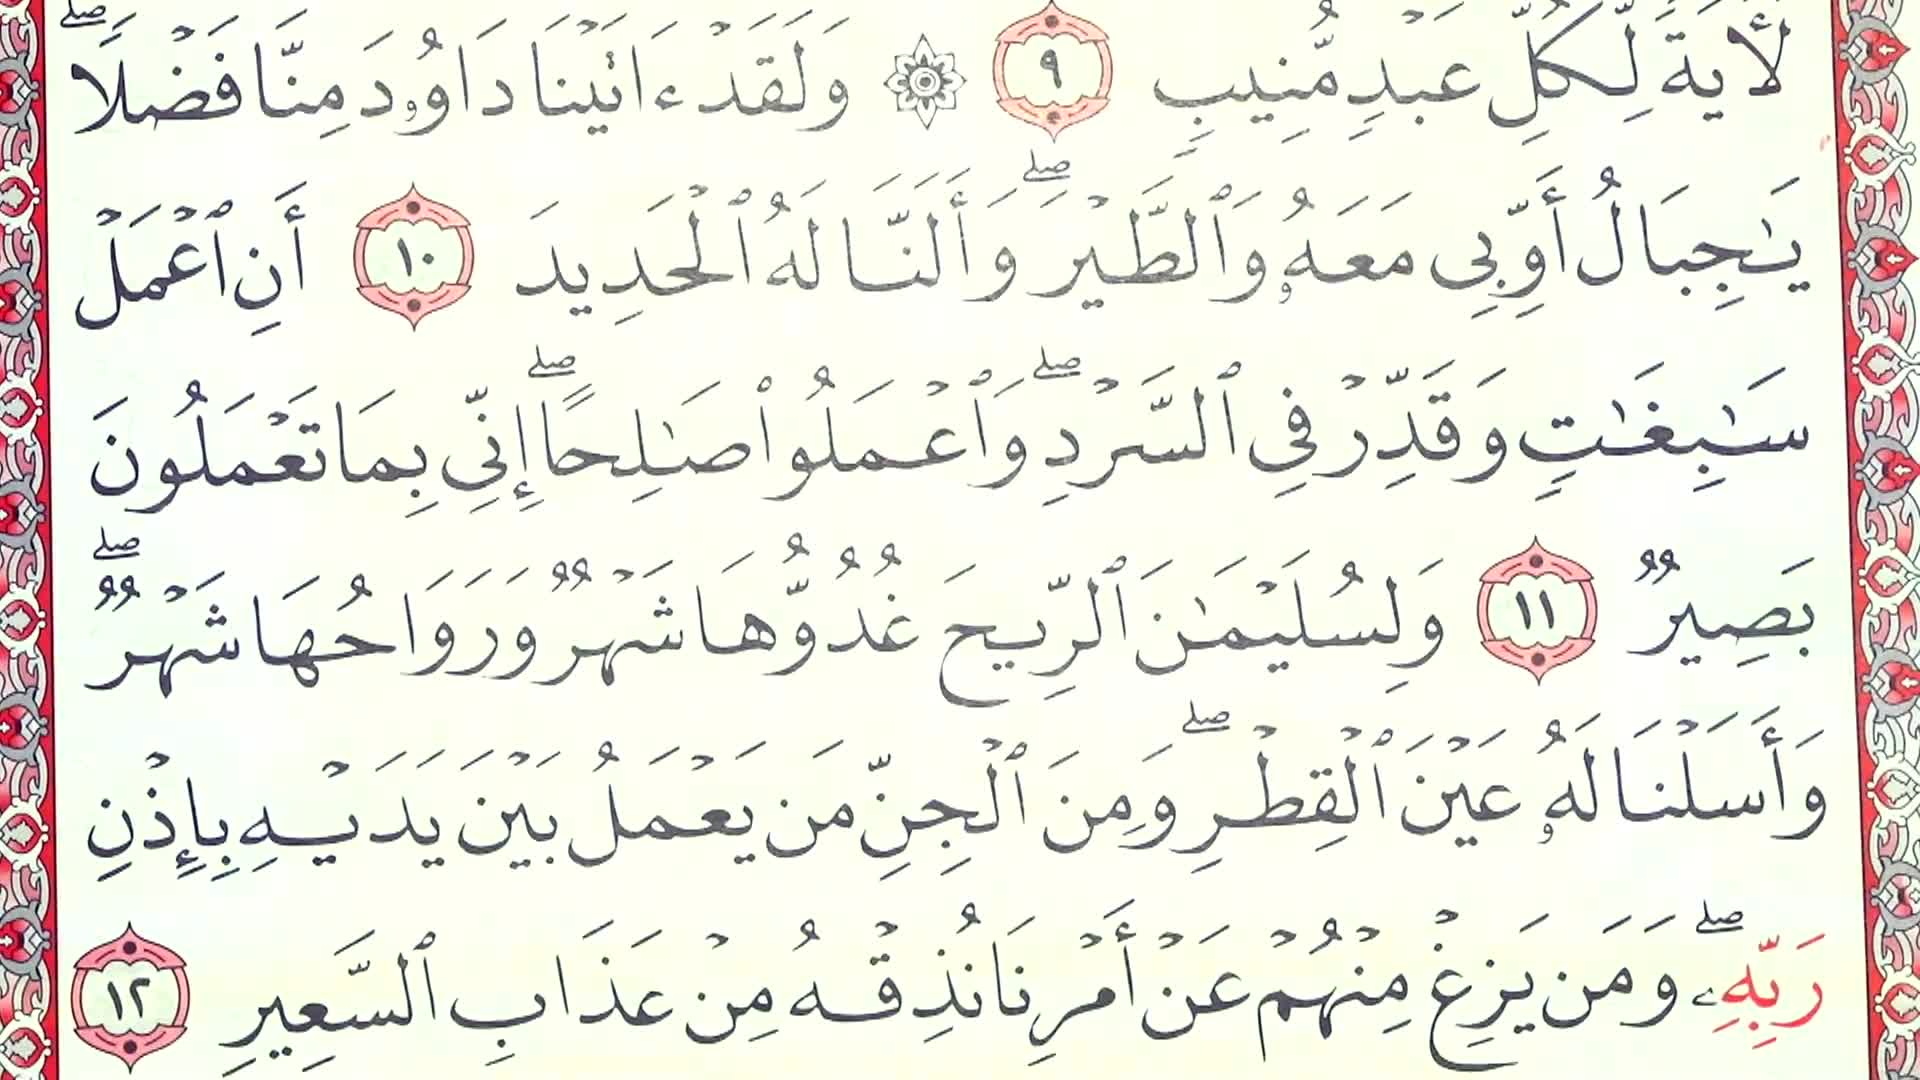 لَأٓيَةٗ لِّكُلِّ عَبۡدٖ مُّنِيبٖ ٩ ۞ وَلَقَدۡ ءَاتَيۡنَا دَاوُۥدَ مِنَّا فَضۡلٗاۖ
يَٰجِبَالُ أَوِّبِي مَعَهُۥ وَٱلطَّيۡرَۖ وَأَلَنَّا لَهُ ٱلۡحَدِيدَ ١٠ أَنِ ٱعۡمَلۡ
سَٰبِغَٰتٖ وَقَدِّرۡ فِي ٱلسَّرۡدِۖ وَٱعۡمَلُواْ صَٰلِحًاۖ إِنِّي بِمَا تَعۡمَلُونَ
بَصِيرٞ ١١ وَلِسُلَيۡمَٰنَ ٱلرِّيحَ غُدُوُّهَا شَهۡرٞ وَرَوَاحُهَا شَهۡرٞۖ
وَأَسَلۡنَا لَهُۥ عَيۡنَ ٱلۡقِطۡرِۖ وَمِنَ ٱلۡجِنِّ مَن يَعۡمَلُ بَيۡنَ يَدَيۡهِ بِإِذۡنِ
رَبِّهِۦۖ وَمَن يَزِغۡ مِنۡهُمۡ عَنۡ أَمۡرِنَا نُذِقۡهُ مِنۡ عَذَابِ ٱلسَّعِيرِ ١٢